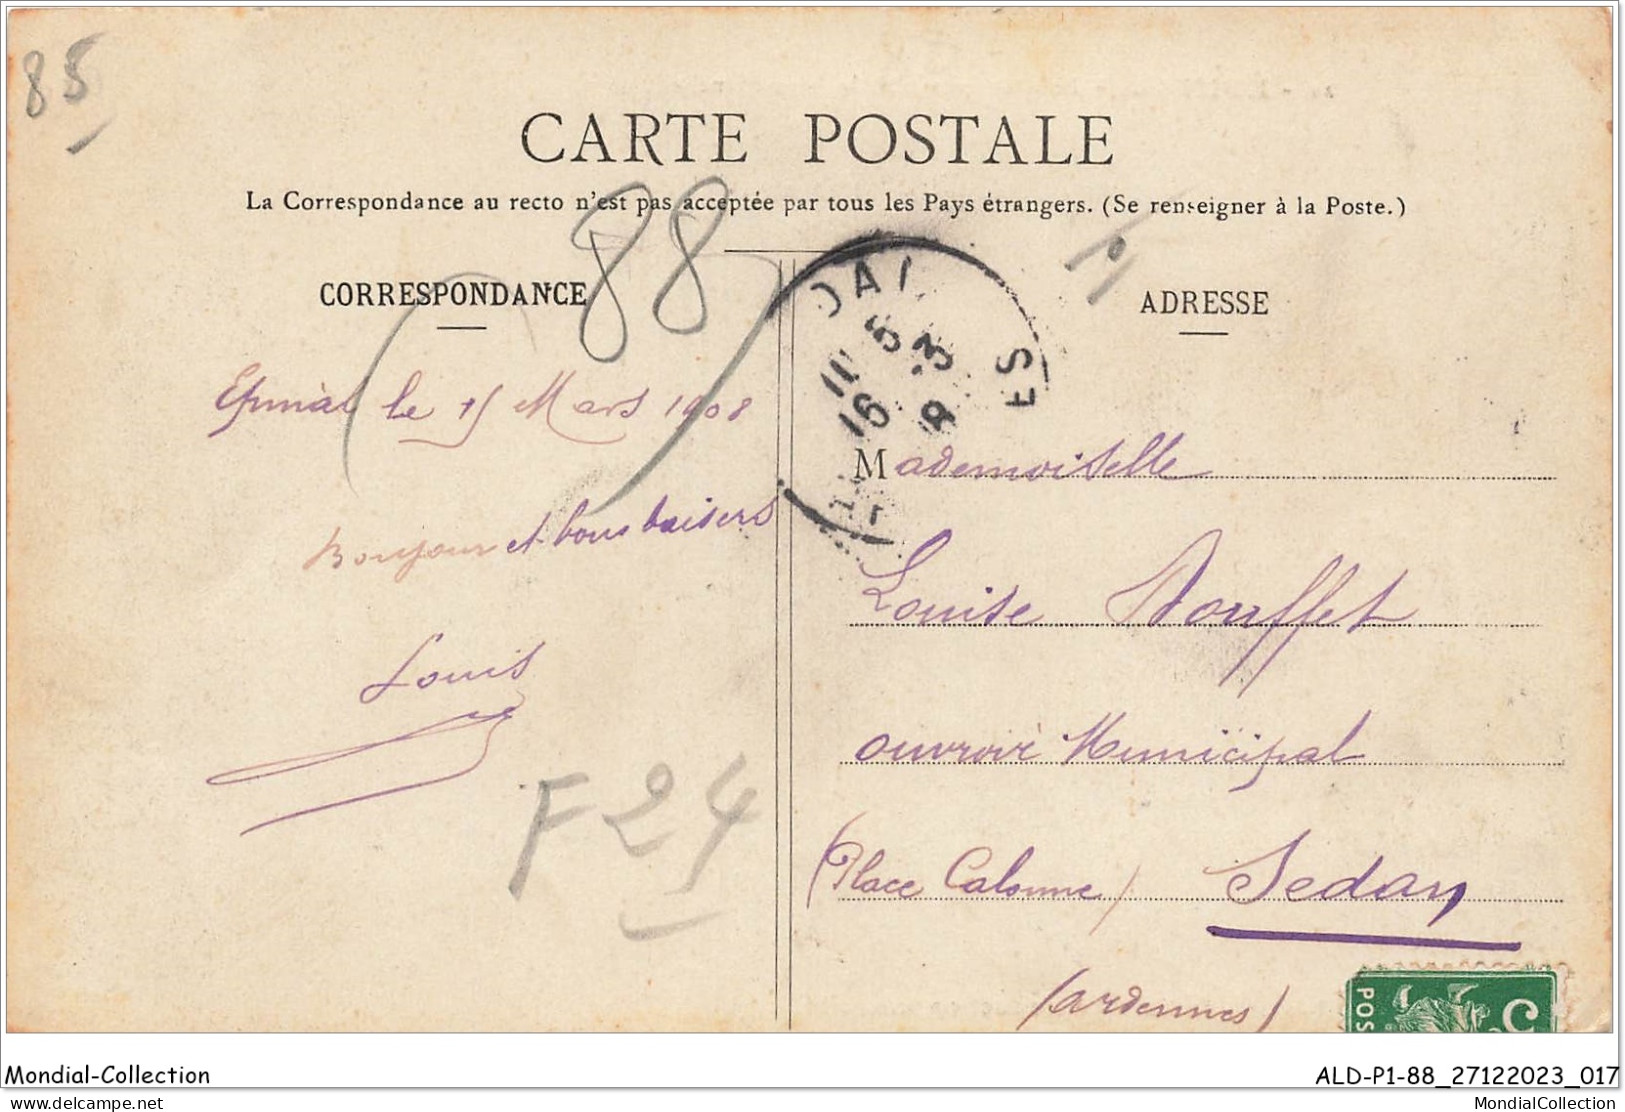 85
CARTE POSTALE
La Correspondance au recto n'est pas acceptée par tous les Pays étrangers. (Se renseigner à la Poste.)
88
CORRESPONDANCE
ADRESSE
Epinal le 15 Mars 1908
Bonjour et bons baisers
Louis
F24
11
16 3
ES
Mademoiselle
Louise Douffet
ouvroir Municipal
(Place Calonne) Sedan
(Ardennes)
POS
5c
Mondial-Collection
ALD-P1-88_27122023_017
delcampe.net
MondialCollection